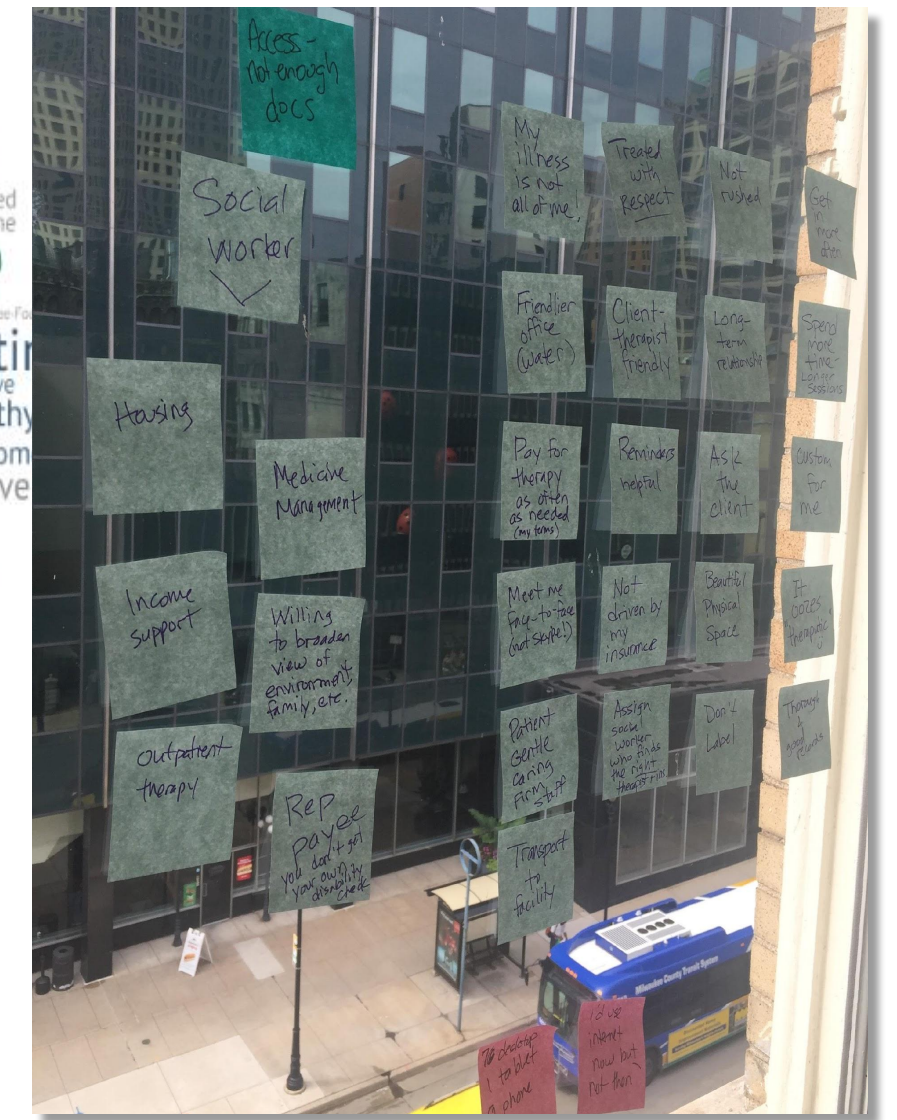 Access -
not enough
docs
Social
worker
Housing
Medicine
Management
Income
support
Willing
to broaden
view of
environment,
family, etc.
Outpatient
therapy
Rep
payee
you don't get
your own
disability
check
My
illness
is not
all of me!
Treated
with
respect
Not
rushed
Get
in more
often
Friendlier
office
(water)
Client-
therapist
friendly
Long-
term
relationship
Spend
more
time-
Longer
Sessions
Pay for
therapy
as often
as needed
(my terms)
Reminders
helpful
Ask
the
client
Custom
for
me
Meet me
face-to-face
(not skype!)
Not
driven by
my
insurance
Beautiful
Physical
Space
It
oozes
"therapeutic"
Patient
gentle
caring
firm staff
Assign
social
worker
who finds
the right
therapist
Don't
Label
Thorough
good
Transport
to
facility
Milwaukee County Transit System
desktop
1 tablet
phone
I'd use
internet
now but
not then
ed
ne
ee-Fou
tin
ve
thy
om
ve